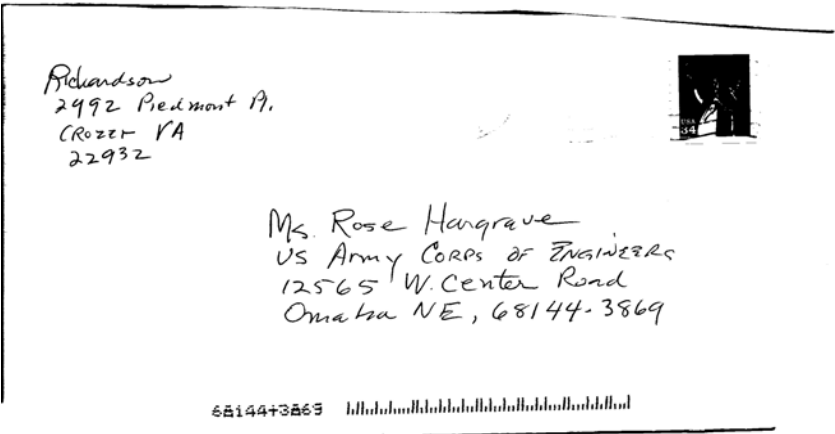 Richardson
2992 Piedmont Pl.
CROZET VA
22932
USA
34
Ms. Rose Hargrave
US Army CORPS OF ENGINEERS
12565 W. Center Road
Omaha NE, 68144-3869
68144+3869